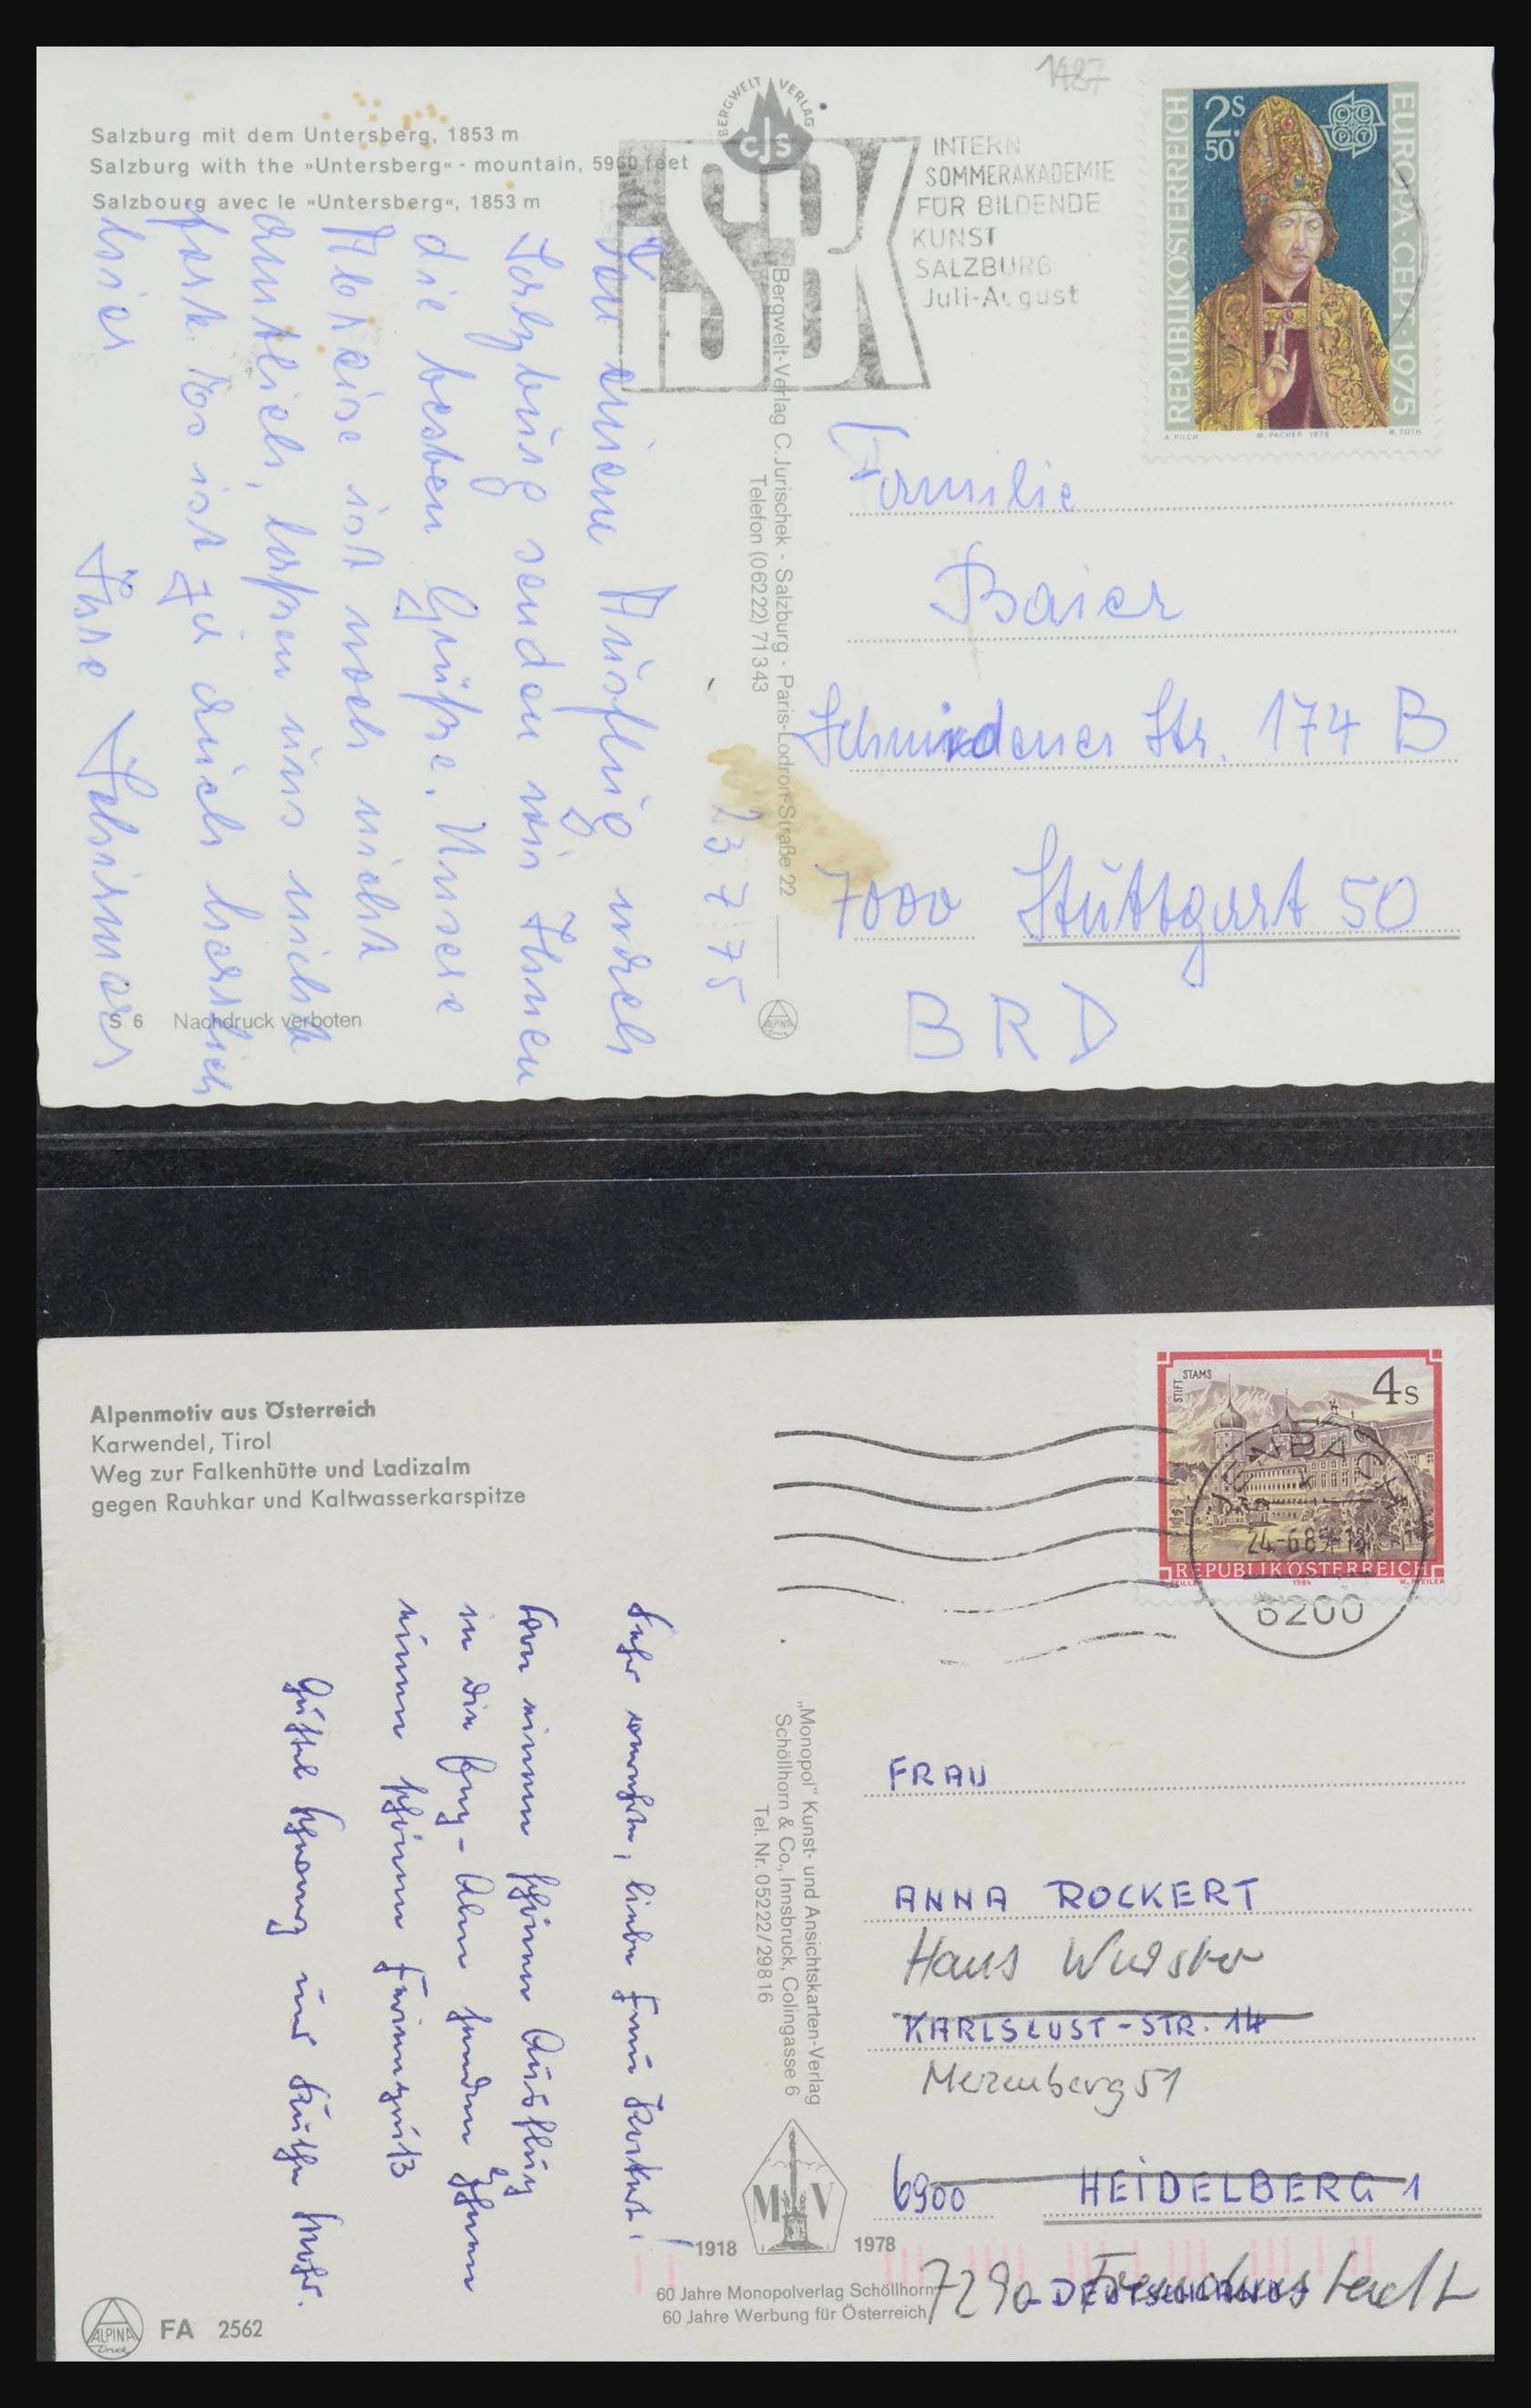 Salzburg mit dem Untersberg, 1853 m
Salzburg with the »Untersberg« - mountain, 5960 feet
Salzbourg avec le »Untersberg«, 1853 m
BERGWELT VERLAG
CJS
SBK
INTERN
SOMMERAKADEMIE
FÜR BILDENDE
KUNST
SALZBURG
Juli-August
1487
2S.50
REPUBLIK ÖSTERREICH
EUROPA · CEPT · 1975
CEPT
A. PILCH M. PACHER 1975 R. TOTH
23.7.75
Von einem Ausflug nach
Salzburg senden wir Ihnen
die besten Grüße. Unsere
Abreise ist noch nicht
amtlich, lassen uns nicht
fort. Es ist ja auch herrlich
hier
Ihre
Bergwelt-Verlag C. Jurischek - Salzburg - Paris-Lodron-Straße 22
Telefon (06222) 71343
Familie
Baier
Schmidener Str. 174 B
7000 Stuttgart 50
BRD
S 6 Nachdruck verboten
ALPINA
Alpenmotiv aus Österreich
Karwendel, Tirol
Weg zur Falkenhütte und Ladizalm
gegen Rauhkar und Kaltwasserkarspitze
STIFT STAMS
4 S
REPUBLIK ÖSTERREICH
1984
JENBACH
24.-6.85-18
6200
Sehr verehrte, liebe Frau Rockert!
Von einem schönen Ausflug
in die Eng-Alm senden wir Ihnen
einen schönen Feriengruß
Gustel und Käthe Mohr.
„Monopol" Kunst- und Ansichtskarten-Verlag
Schöllhorn & Co., Innsbruck, Colingasse 6
Tel. Nr. 05222/29816
FRAU
ANNA ROCKERT
Hans Wurster
KARLSLUST-STR. 14
Merzenberg 51
6900 HEIDELBERG 1
- DEUTSCHLAND -
7290 Freudenstadt
M V
1918 1978
60 Jahre Monopolverlag Schöllhorn
60 Jahre Werbung für Österreich
ALPINA Druck
FA 2562